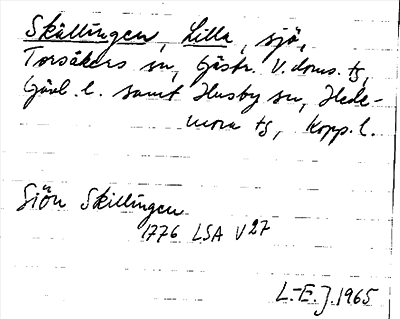 Skällingen, Lilla, sjö,
Torsåkers sn, Gästr. V. doms. tg,
Gävl. l. samt Husby sn, Hede-
mora tg, Kopp. l.
Siön Skillingen
1776 LSA V27
L.-E.J. 1965